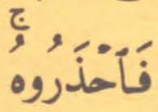 فَٱحْذَرُوهُۚ